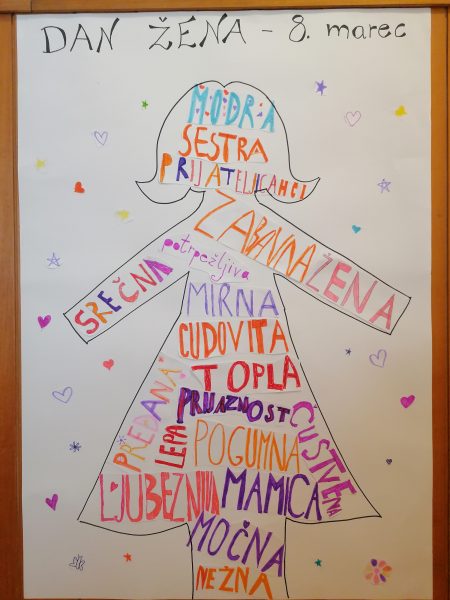 DAN ŽENA - 8. marec
MODRA
SESTRA
PRIJATELJICA HCI
ZABAVNA
ŽENA
potrpežljiva
SREČNA
MIRNA
CUDOVITA
TOPLA
PREDANA
PRIJAZNOST
ČUSTVENA
LEPA
POGUMNA
LJUBEZNIVA
MAMICA
MOČNA
NEŽNA